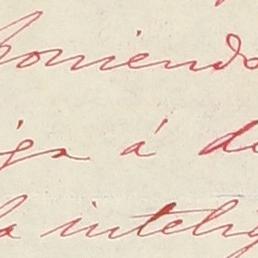 poniendo
iga á de
la intelig